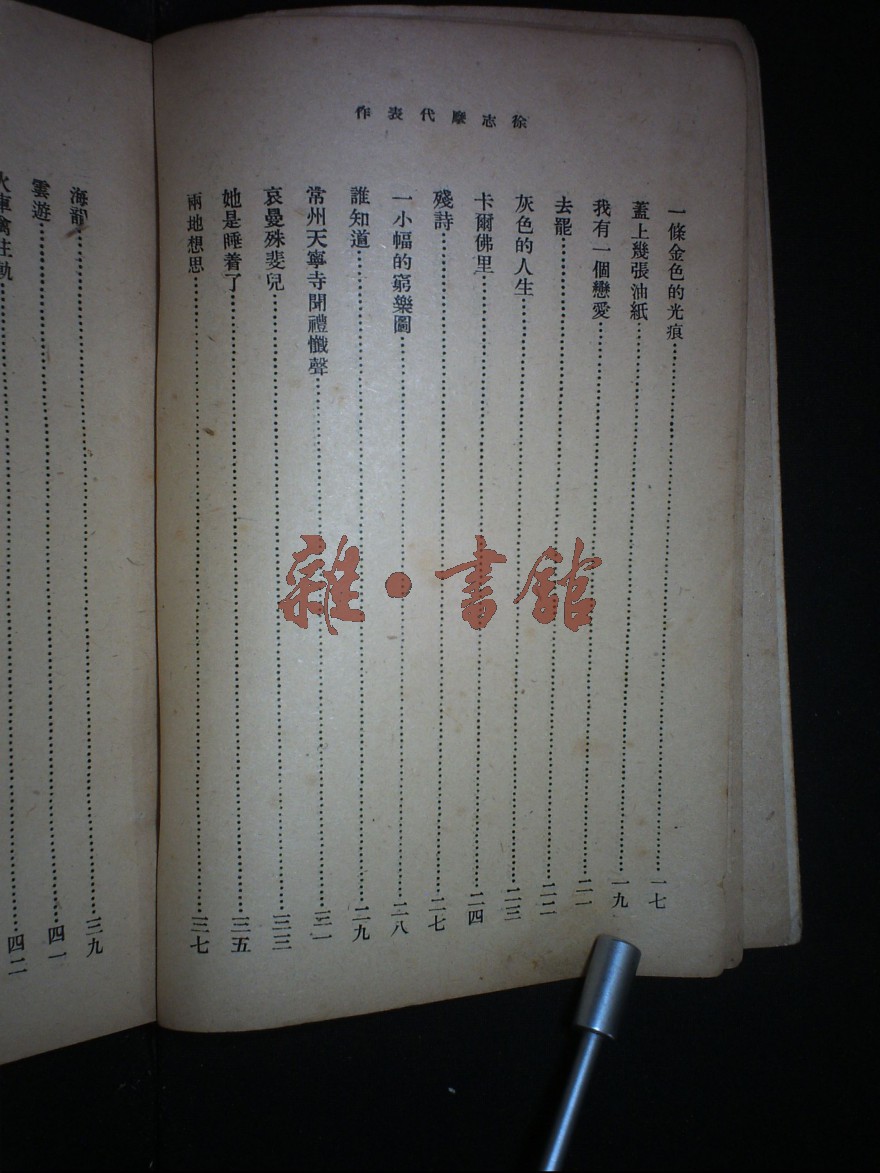 徐志摩代表作
一條金色的光痕……一七
蓋上幾張油紙……一九
我有一個戀愛……二一
去罷……二二
灰色的人生……二三
卡爾佛里……二四
殘詩……二七
一小幅的窮樂圖……二八
誰知道……二九
常州天寧寺聞禮懺聲……三一
哀曼殊斐兒……三三
她是睡着了……三五
兩地想思……三七
海韻……三九
雲遊……四一
火車禽住軌……四二
雜·書館